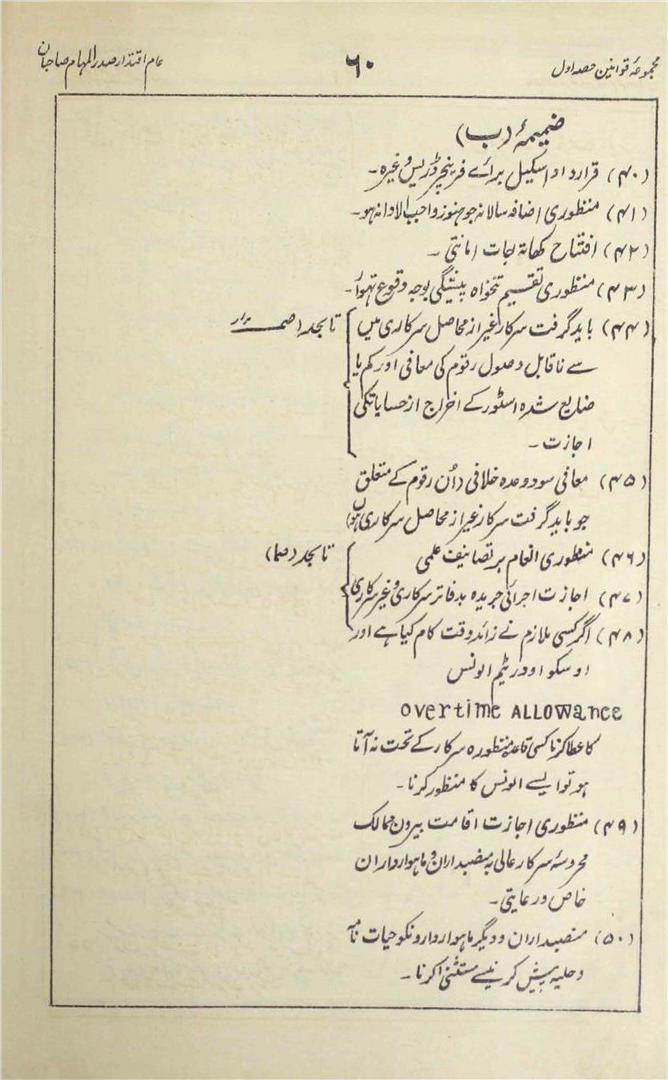 مجموعۂ قوانین حصہ اول
۶۰
عام اقتدار صدر المہام صاحبان
ضمیمۂ (ب)
(۴۰) قرارداد اسکیل برائے فرینچر ڈریس وغیرہ۔
(۴۱) منظوری اضافہ سالانہ جو ہنوز واجب الادا نہ ہو۔
(۴۲) افتتاح کھاتہ جات امانتی۔
(۴۳) منظوری تقسیم تنخواہ پیشگی بوجہ وقوع تہوار۔
(۴۴) بایدگرفت سرکار غیر از محاصل سرکاری میں تابحد
سے ناقابل وصول رقوم کی معافی اور کم یا
ضایع شدہ اسٹور کے اخراج از حسابات کی
اجازت۔
(۴۵) معافی سود وعدہ خلافی (اُن رقوم کے متعلق
جو بایدگرفت سرکار غیر از محاصل سرکاری ہوں)
(۴۶) منظوری انعام بر تصانیف علمی تابحد
(۴۷) اجازت اجرائی جریدہ بدفاتر سرکاری و غیر سرکاری
(۴۸) اگر کسی ملازم نے زائد وقت کام کیا ہے اور
اوسکو اوورٹیم الونس
overtime ALLOWance
کا عطا کرنا کسی قاعدہ منظورہ سرکار کے تحت نہ آتا
ہو تو ایسے الونس کا منظور کرنا۔
(۴۹) منظوری اجازت اقامت بیرون ممالک
محروسۂ سرکار عالی بہ منصبداران و ماہوارداران
خاص و رعایتی۔
(۵۰) منصبداران و دیگر ماہوارداروں کو حیات نامہ
و حلیہ پیش کرنیسے مستثنیٰ کرنا۔